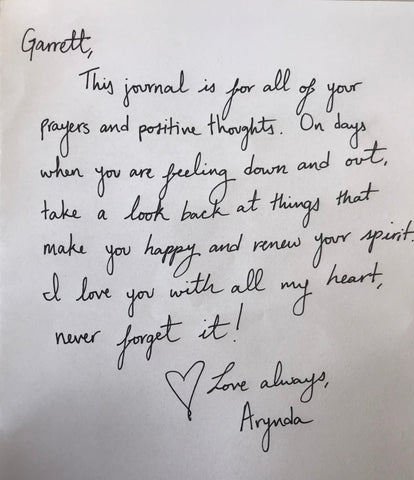 Garrett,
This journal is for all of your
prayers and positive thoughts. On days
when you are feeling down and out,
take a look back at things that
make you happy and renew your spirit.
I love you with all my heart,
never forget it!
♡ Love always,
Arynda